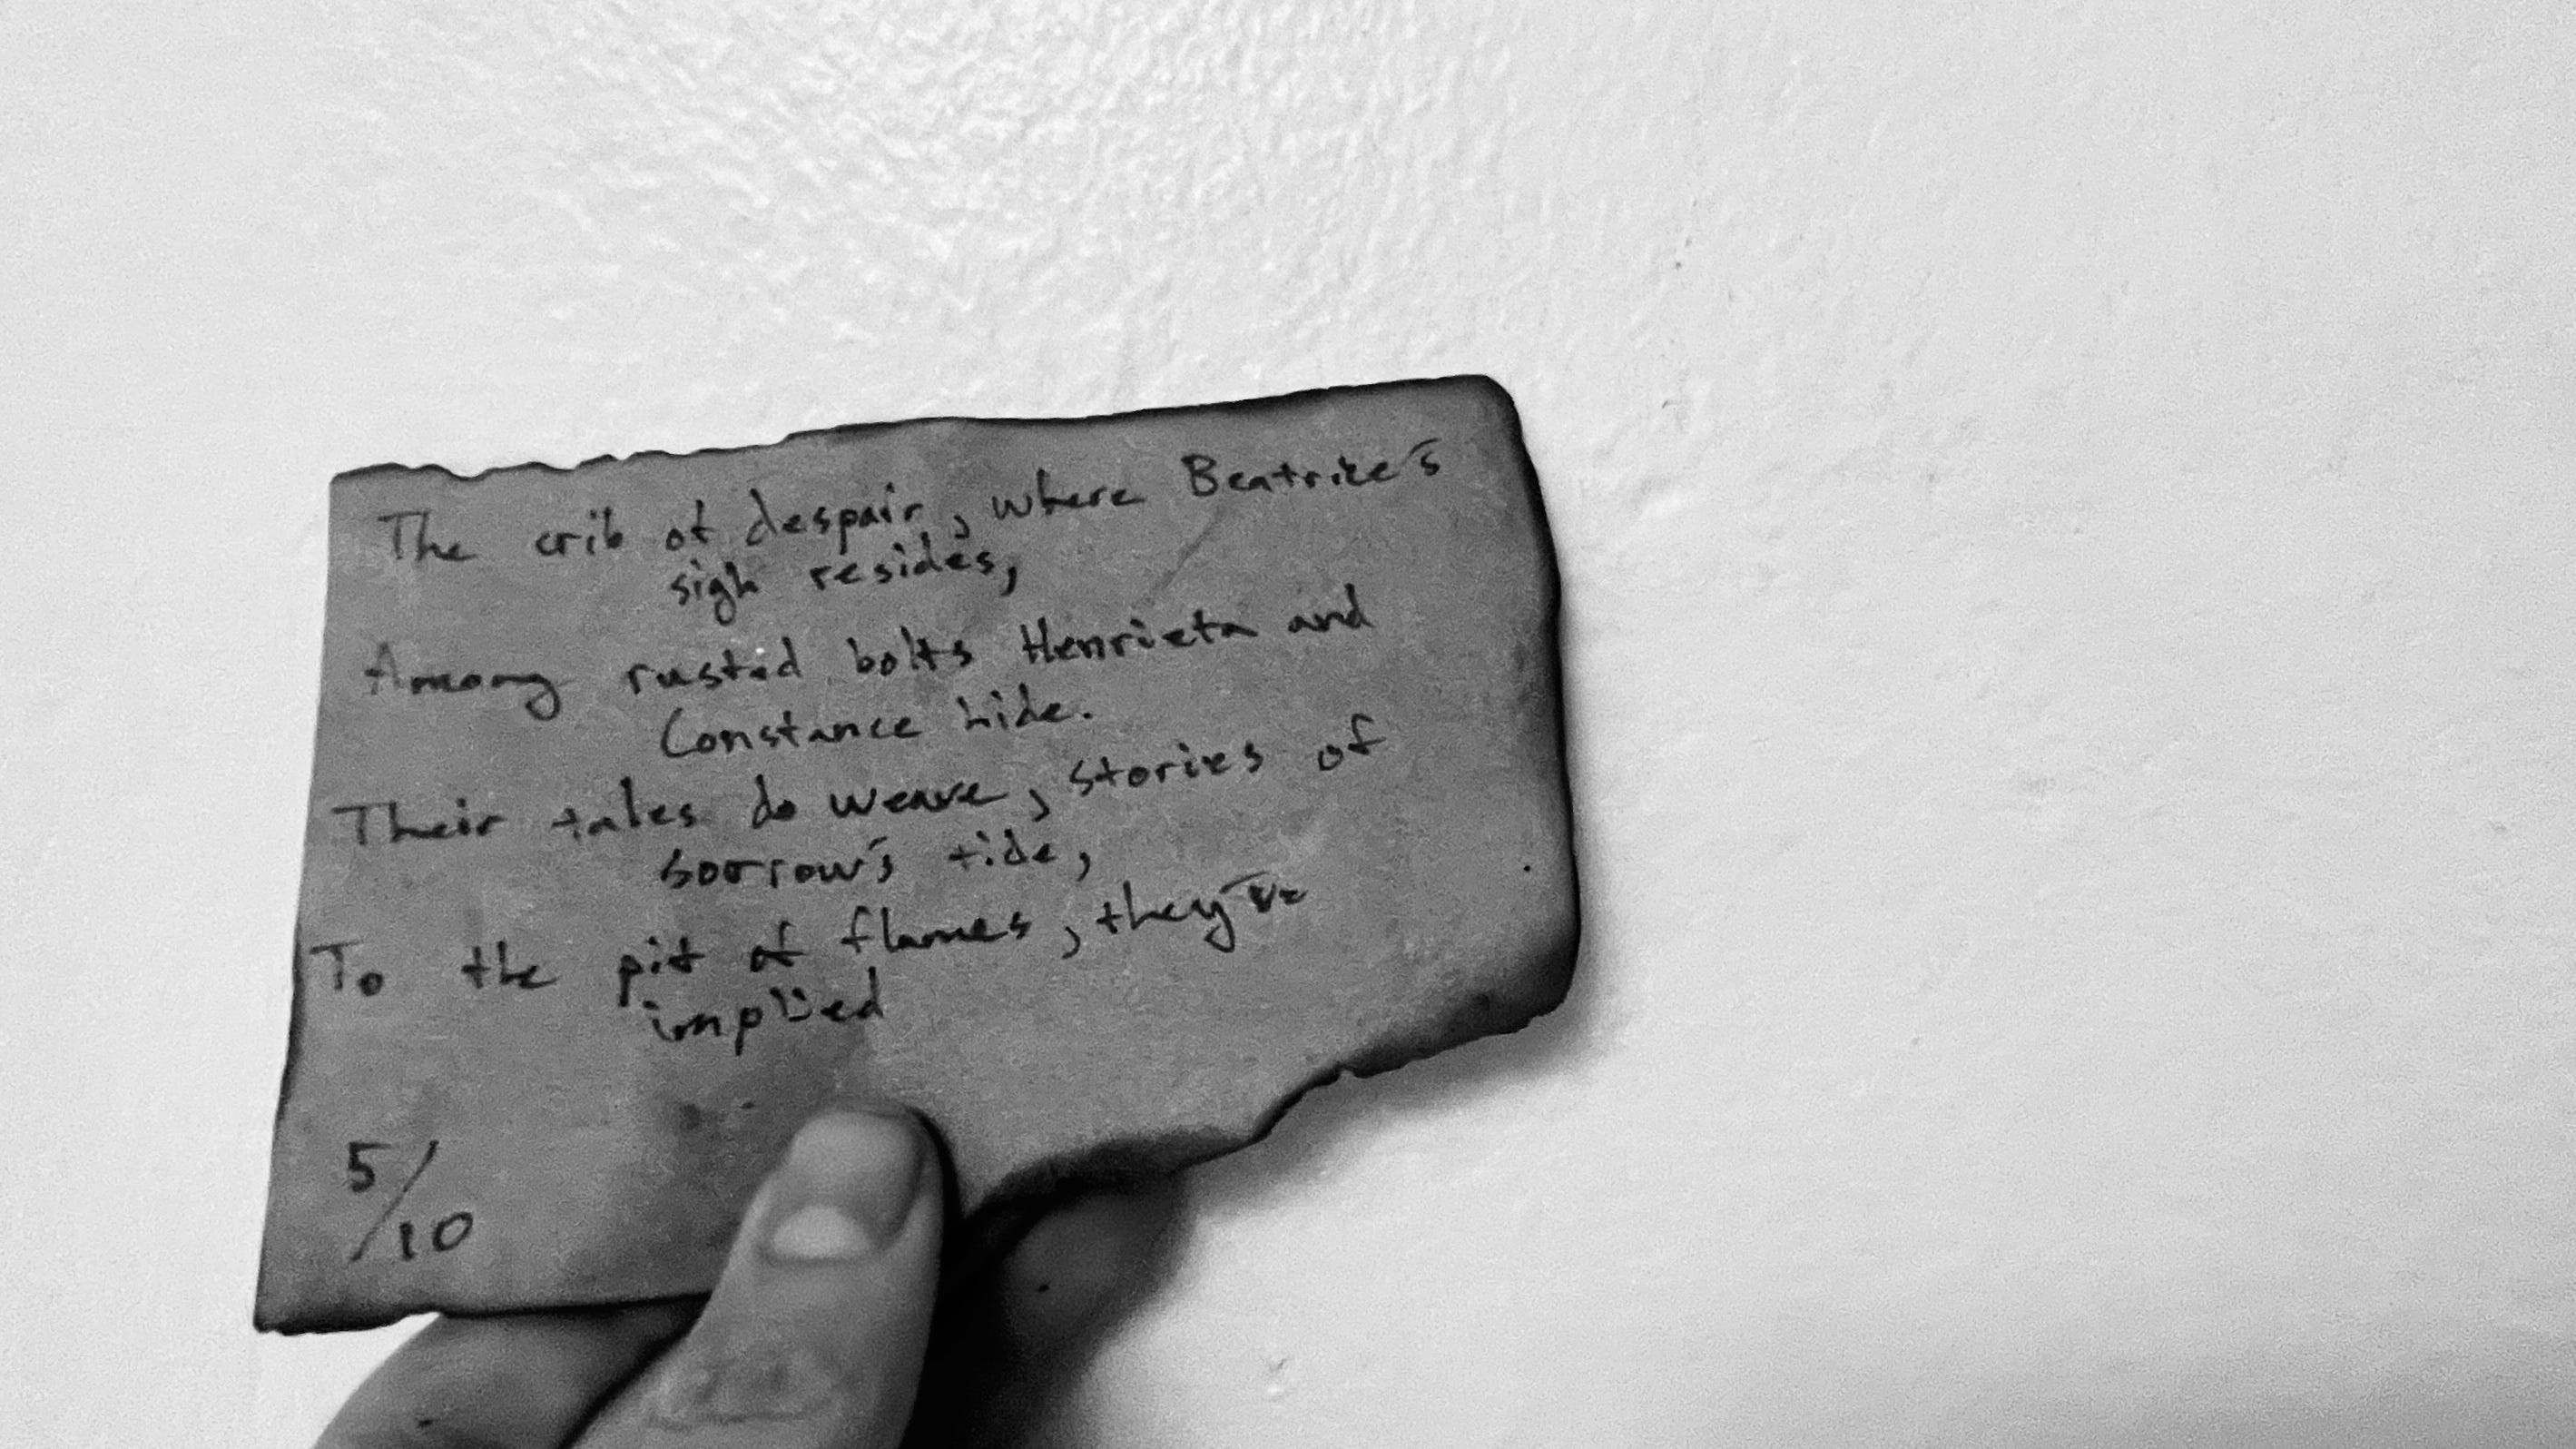 The crib of despair, where Beatrice's
sigh resides,
Among rusted bolts Henrieta and
Constance hide.
Their tales do weave, stories of
sorrow's tide,
To the pit of flames, they've
implied
5/10